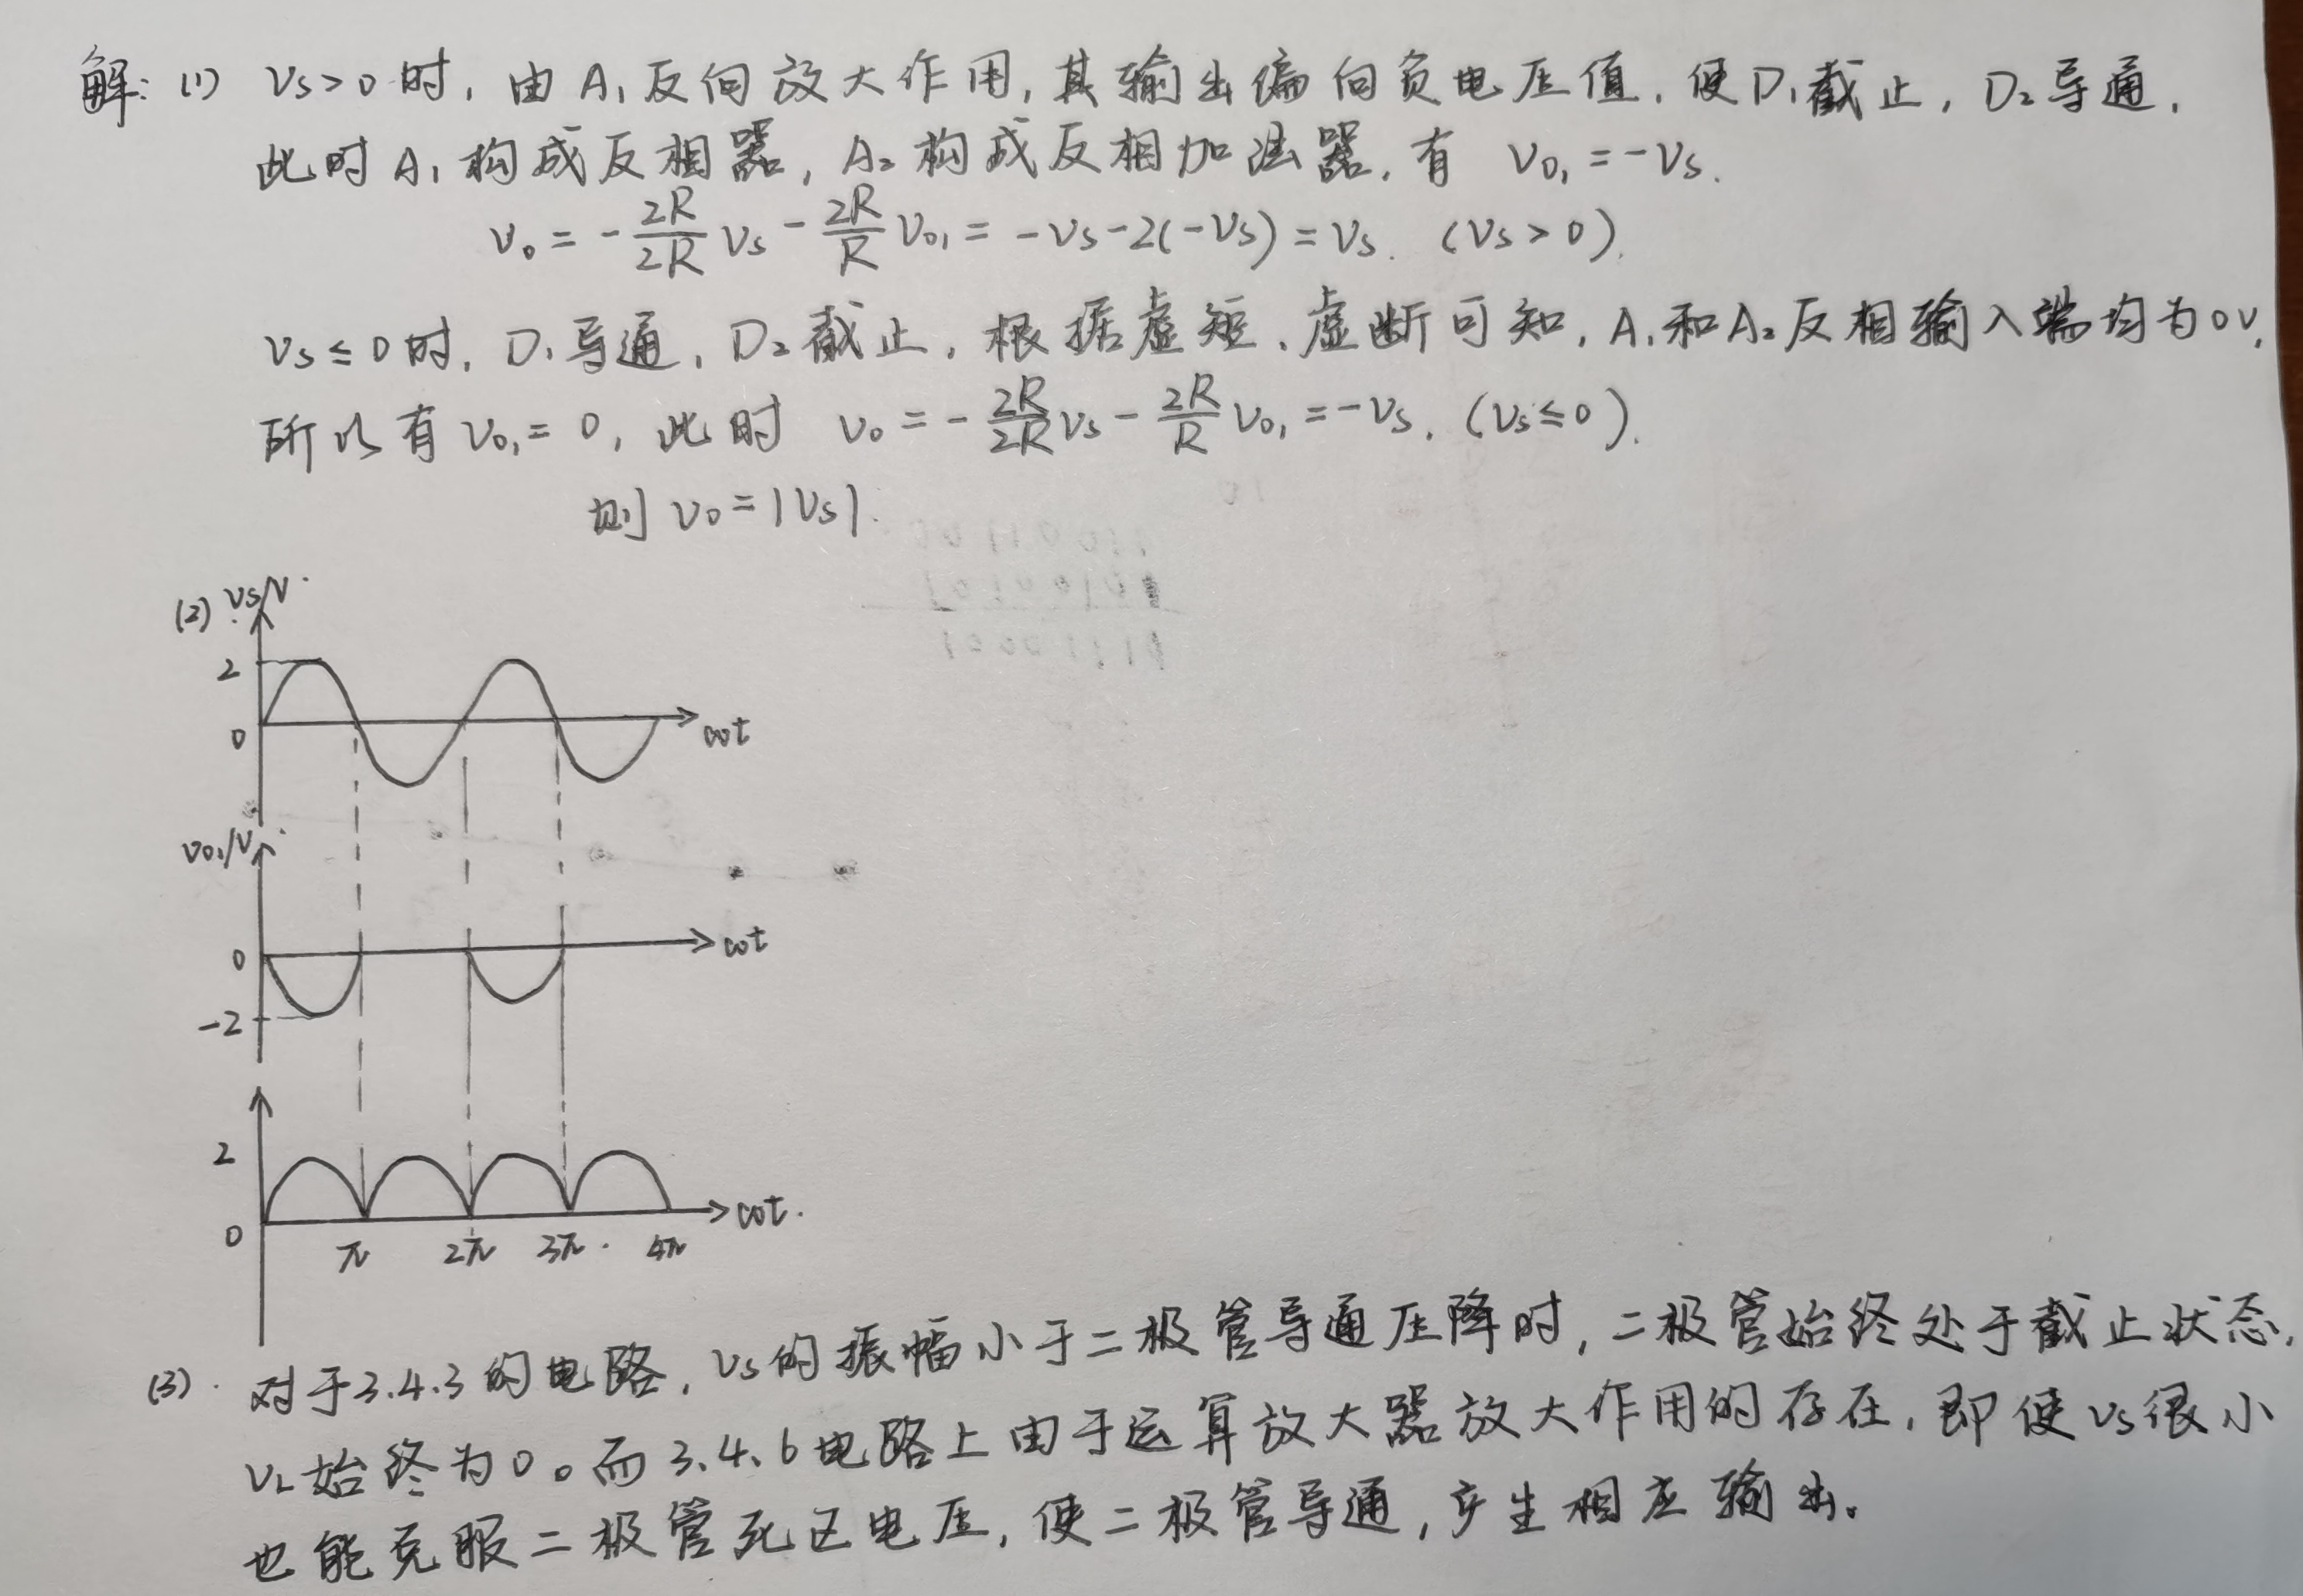 解：(1) Vs>0时，由A₁反向放大作用，其输出偏向负电压值，使D₁截止，D₂导通，
此时A₁构成反相器，A₂构成反相加法器，有 Vo₁=-Vs.
Vo = -2R/2R Vs - 2R/R Vo₁ = -Vs-2(-Vs) = Vs. (Vs>0).
Vs≤0时，D₁导通，D₂截止，根据虚短、虚断可知，A₁和A₂反相输入端均为0V，
所以有Vo₁=0，此时 Vo = -2R/2R Vs - 2R/R Vo₁ = -Vs. (Vs≤0).
则 Vo=|Vs|.
(2) Vs/V
2
0
ωt
Vo₁/V
0
ωt
-2
2
0
ωt.
π 2π 3π 4π
(3). 对于3.4.3的电路，Vs的振幅小于二极管导通压降时，二极管始终处于截止状态，
VL始终为0。而3.4.6电路上由于运算放大器放大作用的存在，即使Vs很小
也能克服二极管死区电压，使二极管导通，产生相应输出。